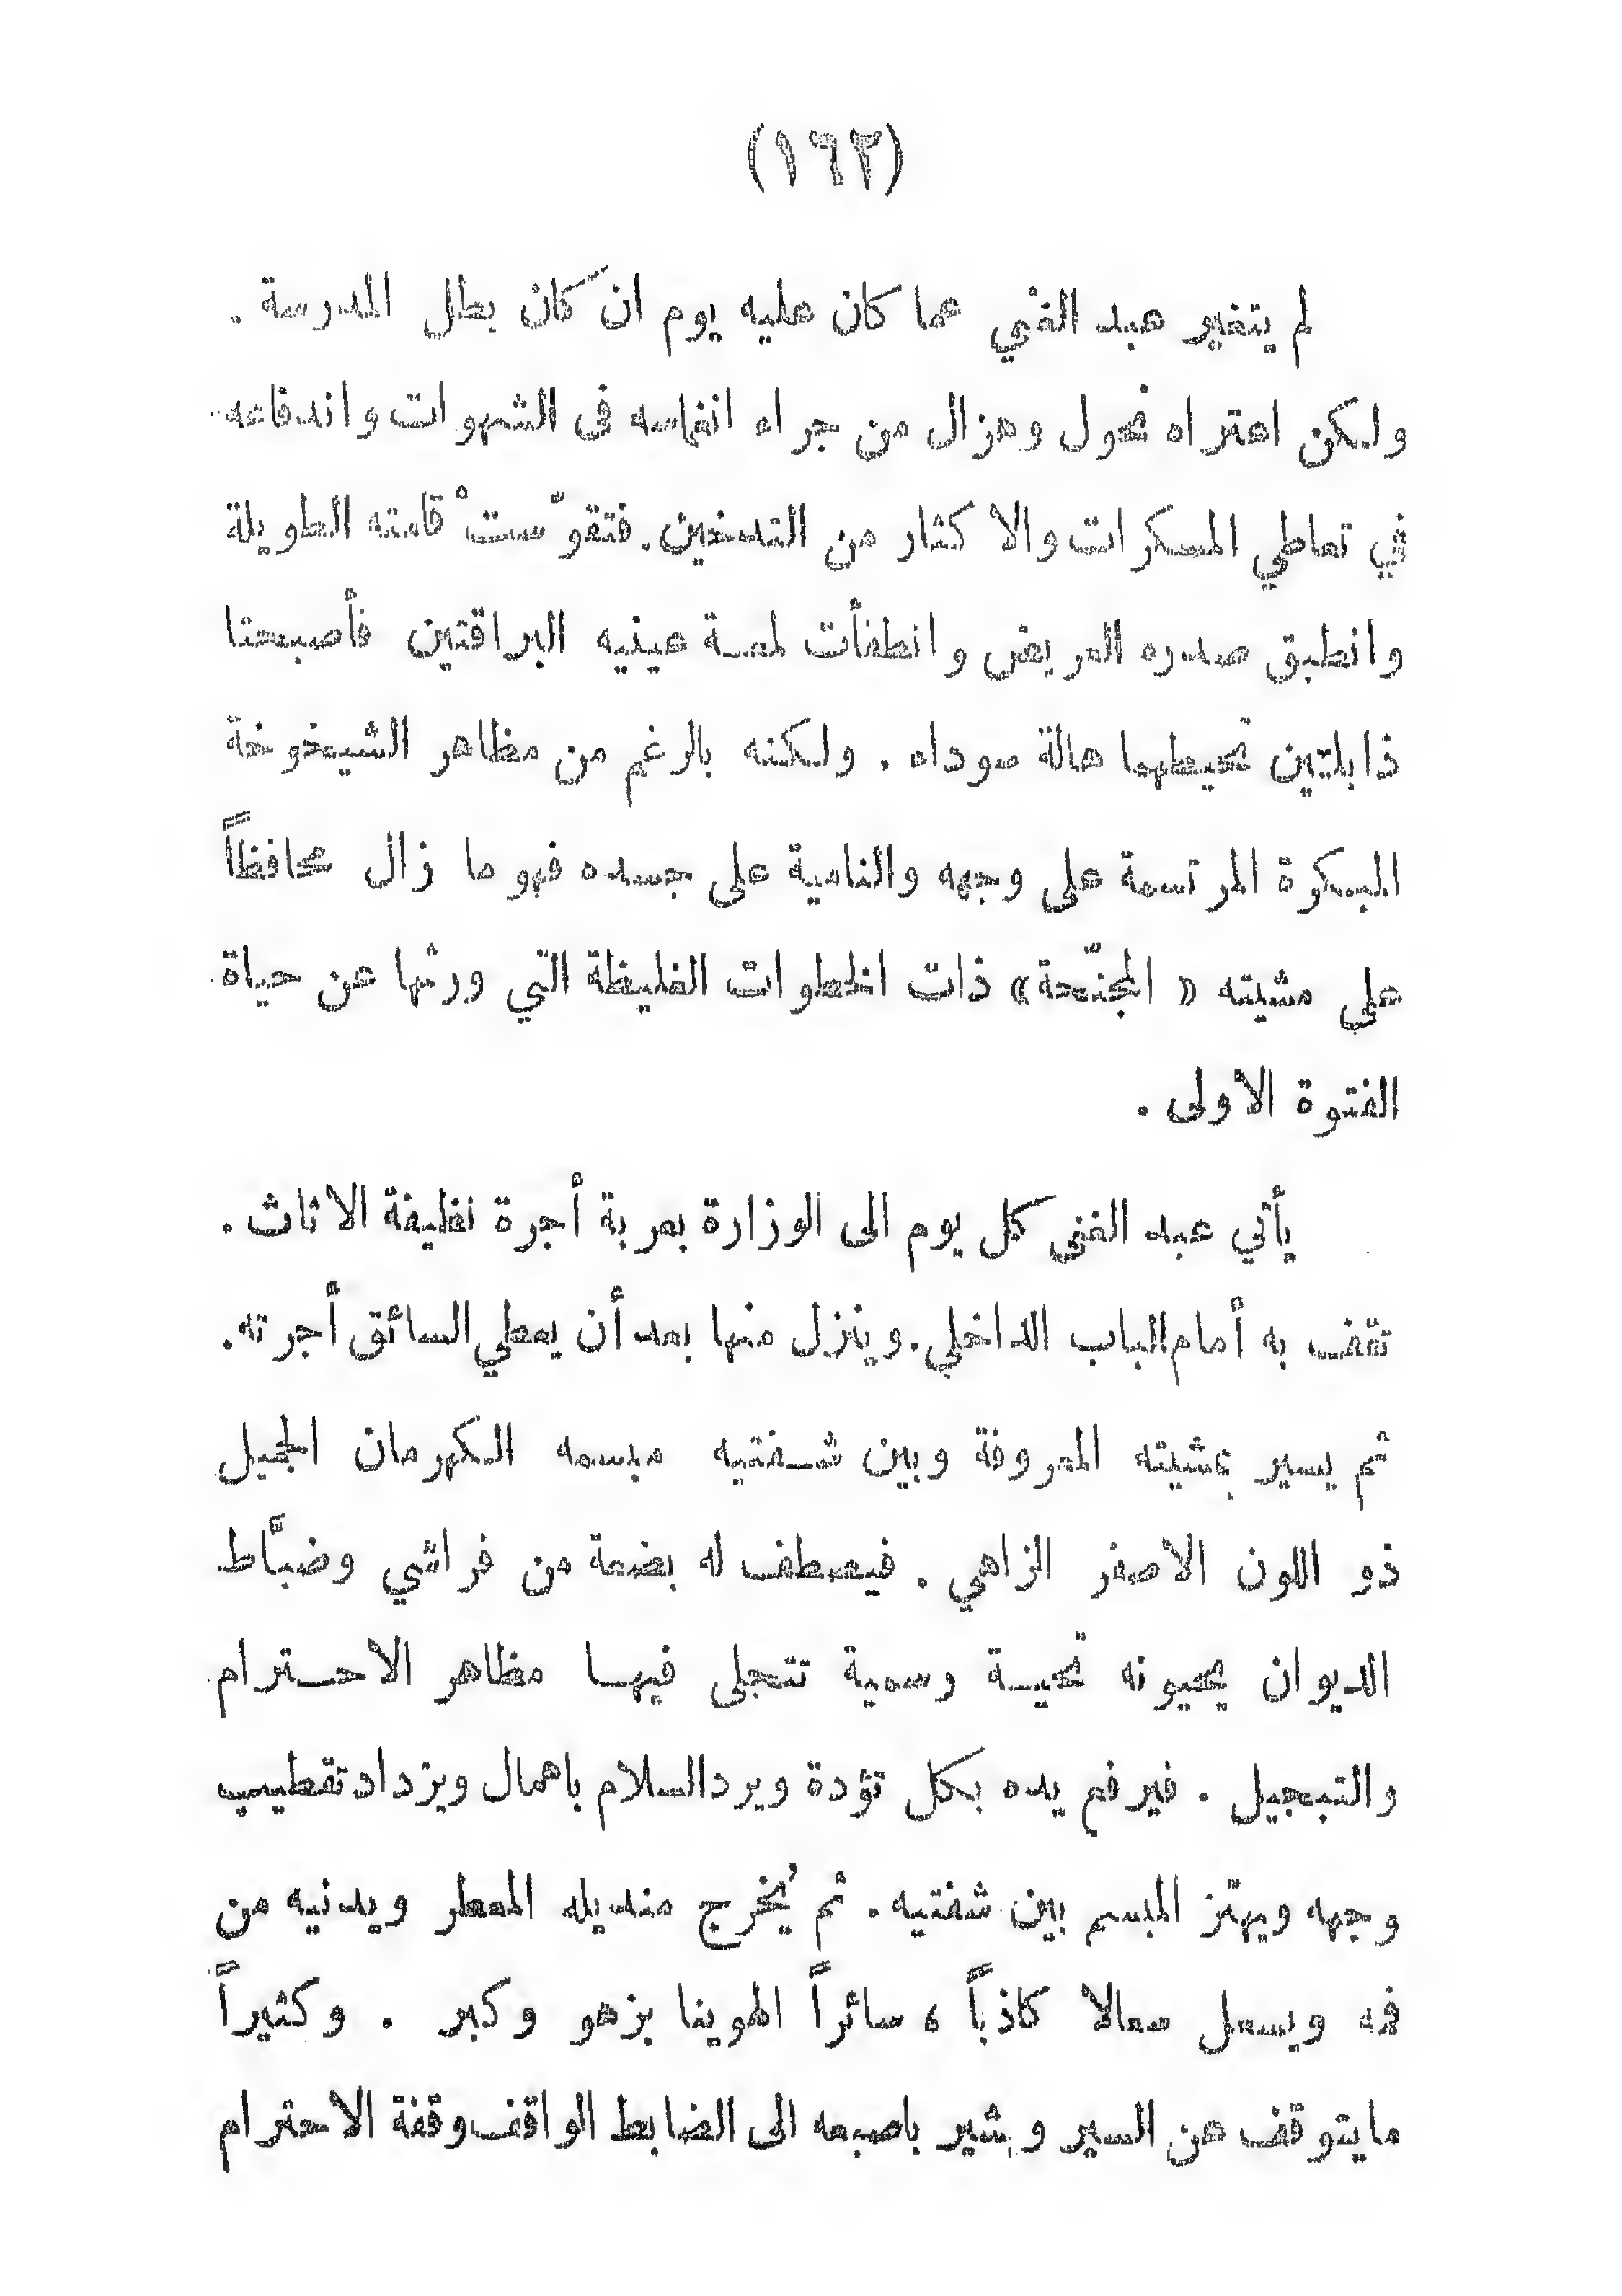 (١٦٢)
لم يتغير عبد الغني عما كان عليه يوم ان كان بطل المدرسة .
ولكن اعتراه نحول وهزال من جراء انغماسه فى الشهوات واندفاعه
في تعاطي المسكرات والاكثار من التدخين. فتقوّستْ قامته الطويلة
وانطبق صدره العريض وانطفأت لمعة عينيه البراقتين فأصبحتا
ذابلتين تحيطهما هالة سوداء . ولكنه بالرغم من مظاهر الشيخوخة
المبكرة المرتسمة على وجهه والنامية على جسده فهو ما زال محافظاً
على مشيته « المجنّحة» ذات الخطوات الغليظة التي ورثها عن حياة
الفتوة الاولى .
يأتي عبد الغنى كل يوم الى الوزارة بعربة أجرة نظيفة الاثاث .
تقف به أمام الباب الداخلي. وينزل منها بعد أن يعطي السائق أجرته.
ثم يسير بمشيته المعروفة وبين شفتيه مبسمه الكهرمان الجميل
ذو اللون الاصفر الزاهي . فيصطف له بضعة من فراشي وضبَّاط
الديوان يحيونه تحية رسمية تتجلى فيها مظاهر الاحترام
والتبجيل . فيرفع يده بكل تؤدة ويرد السلام باهمال ويزداد تقطيب
وجهه ويهتز المبسم بين شفتيه . ثم يُخرج منديله المعطر ويدنيه من
فمه ويسعل سعالا كاذباً ، سائراً الهوينا بزهو وكبر . وكثيراً
ما يتوقف عن السير ويشير باصبعه الى الضابط الواقف وقفة الاحترام